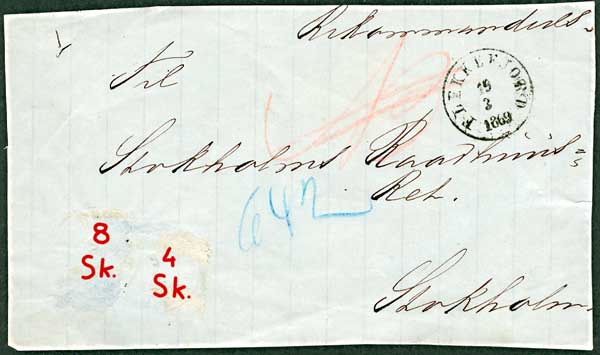 Rekommanderes
Til
FLEKKEFJORD
19
3
1869
Stokholms Raadhuus=
Ret.
642
8
Sk.
4
Sk.
Stokholm.